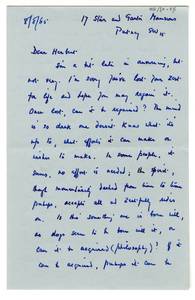 8/5/65
17 Star and Garter Mansions
Putney SW15
Dear Herbert
I'm a bit late in answering, but
not very. I'm sorry you've lost your zest
for life and hope you may regain it.
Once lost, can it be regained? The mind
is so dark one doesn't know what it's
up to, what efforts it can make or
wishes to make. In some people, it
seems, no effort is needed, the spirit,
though momentarily dashed from time to time
perhaps, accepts all and zestfully rides
on. Is this something one is born with,
as dogs seem to be born with it, or
can it be acquired (philosophy)? If it
can be acquired, perhaps it can be